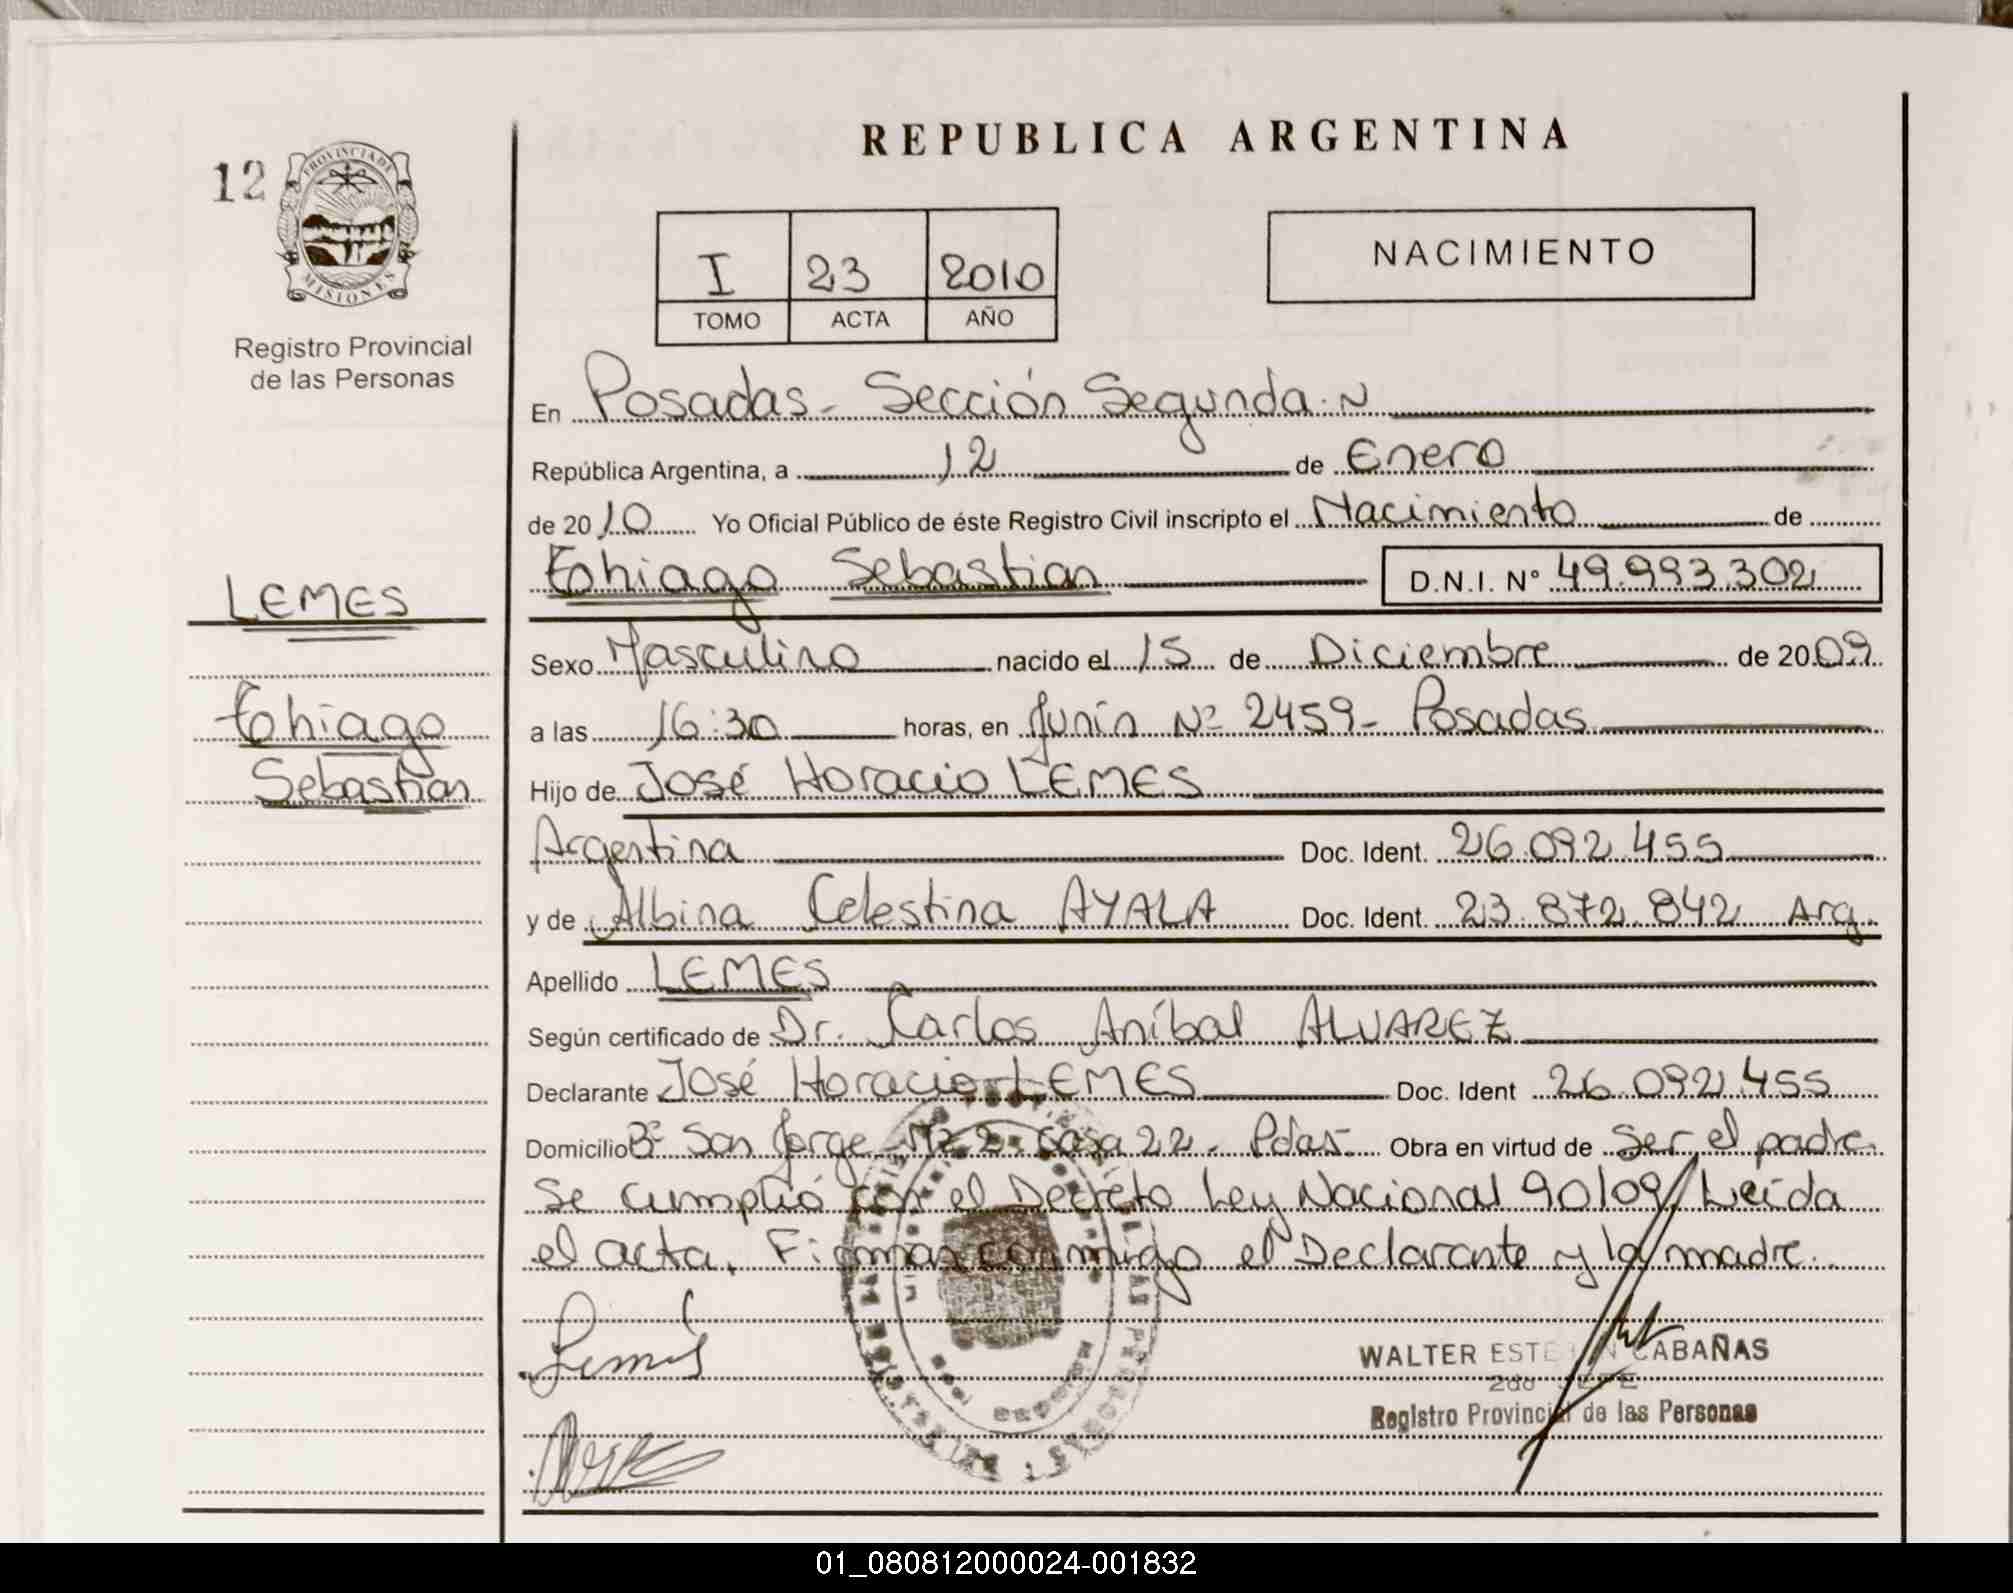 REPUBLICA ARGENTINA
12
PROVINCIA DE
MISIONES
Registro Provincial
de las Personas
I 23 2010
TOMO ACTA AÑO
NACIMIENTO
En Posadas - Sección Segunda. N
República Argentina, a 12 de Enero
de 2010 Yo Oficial Público de éste Registro Civil inscripto el Nacimiento de
Tohiago Sebastian D.N.I. N° 49.993.302
LEMES
Tohiago
Sebastian
Sexo Masculino nacido el 15 de Diciembre de 2009
a las 16:30 horas, en Junín Nº 2459- Posadas
Hijo de José Horacio LEMES
Argentina Doc. Ident. 26.092.455
y de Albina Celestina AYALA Doc. Ident. 23.872.842 Arg.
Apellido LEMES
Según certificado de Dr. Carlos Aníbal ALVAREZ
Declarante José Horacio LEMES Doc. Ident 26.092.455
Domicilio Bº San Jorge Mz 2- casa 22- Pdas. Obra en virtud de ser el padre.
Se cumplió con el Decreto Ley Nacional 90/09 Leída
el acta. Firman conmigo el Declarante y la madre.
Lemes
WALTER ESTEBAN CABAÑAS
2do JEFE
Registro Provincial de las Personas
01_080812000024-001832